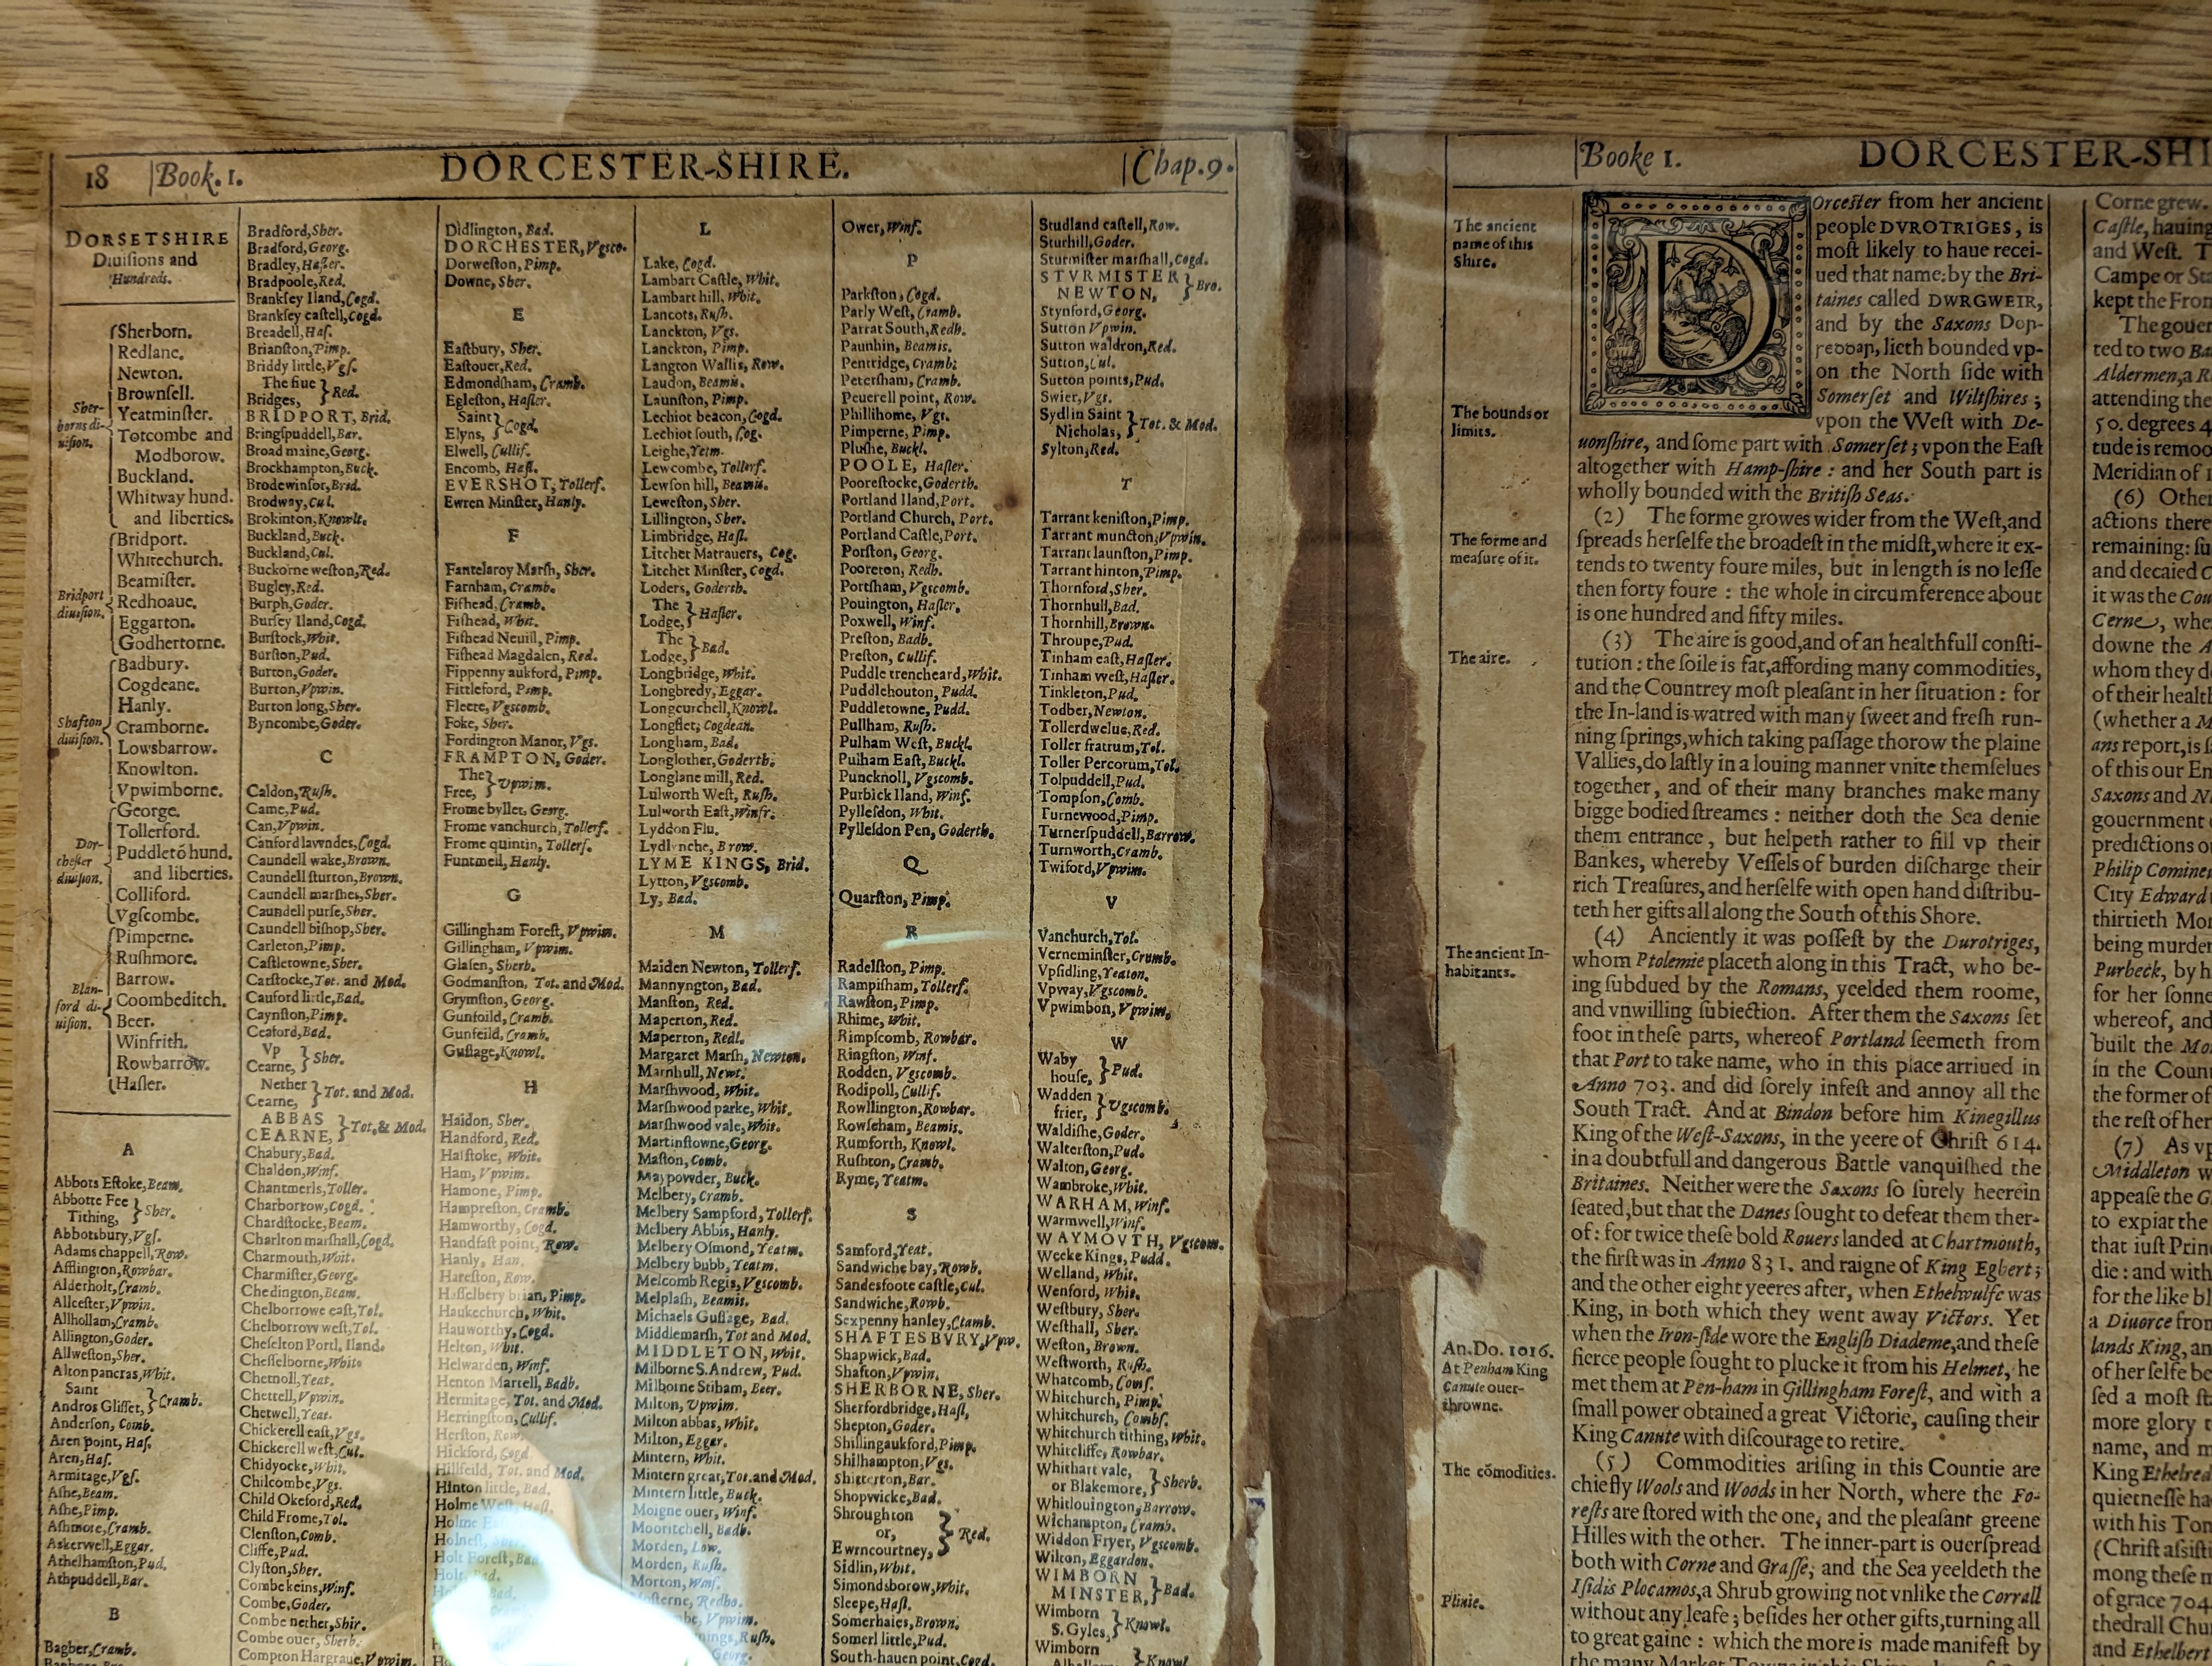 18 Book. 1.
DORCESTER-SHIRE.
Chap. 9.
DORSETSHIRE
Diuiſions and
Hundreds.
Sher-
borns di-
uiſion.
Sherborn.
Redlane.
Newton.
Brownſell.
Yeatminſter.
Totcombe and
Modborow.
Buckland.
Whitway hund.
and liberties.
Bridport
diuiſion.
Bridport.
Whitechurch.
Beamiſter.
Redhoaue.
Eggarton.
Godhertorne.
Shafton
diuiſion.
Badbury.
Cogdeane.
Hanly.
Cramborne.
Lowsbarrow.
Knowlton.
Vpwimborne.
Dor-
cheſter
diuiſion.
George.
Tollerford.
Puddletō hund.
and liberties.
Colliford.
Vgſcombe.
Blan-
ford di-
uiſion.
Pimperne.
Ruſhmore.
Barrow.
Coombeditch.
Beer.
Winfrith.
Rowbarrow.
Haſler.
A
Abbots Eſtoke, Beam.
Abbotte Fee
Tithing, } Sher.
Abbotsbury, Vgſ.
Adams chappell, Row.
Afflington, Rowbar.
Alderholt, Cramb.
Allceſter, Vpwin.
Allhollam, Cramb.
Allington, Goder.
Allweſton, Sher.
Alton pancras, Whit.
Saint
Andros Gliſſet, } Cramb.
Anderſon, Comb.
Aren point, Haſ.
Aren, Haſ.
Armitage, Vgſ.
Aſhe, Beam.
Aſhe, Pimp.
Aſhmore, Cramb.
Askerwell, Eggar.
Athelhamſton, Pud.
Athpuddell, Bar.
B
Bagber, Cramb.
Bradford, Sher.
Bradford, Georg.
Bradley, Haſler.
Bradpoole, Red.
Brankſey Iland, Cogd.
Brankſey caſtell, Cogd.
Breadell, Haſ.
Brianſton, Pimp.
Briddy little, Vgſ.
The fiue
Bridges, } Red.
BRIDPORT, Brid.
Bringſpuddell, Bar.
Broad maine, Georg.
Brockhampton, Buck.
Brodewinſor, Brid.
Brodway, Cul.
Brokinton, Knowlt.
Buckland, Buck.
Buckland, Cul.
Buckorne weſton, Red.
Bugley, Red.
Burph, Goder.
Burſey Iland, Cogd.
Burſtock, Whit.
Burſton, Pud.
Burton, Goder.
Burton, Vpwin.
Burton long, Sher.
Byncombe, Goder.
C
Caldon, Ruſh.
Came, Pud.
Can, Vpwin.
Canford lawndes, Cogd.
Caundell wake, Brown.
Caundell ſturton, Brown.
Caundell marſhes, Sher.
Caundell purſe, Sher.
Caundell biſhop, Sher.
Carleton, Pimp.
Caſtletowne, Sher.
Catſtocke, Tot. and Mod.
Cauford little, Bad.
Caynſton, Pimp.
Ceaford, Bad.
Vp
Cearne, } Sher.
Nether
Cearne, } Tot. and Mod.
ABBAS
CEARNE, } Tot. & Mod.
Chabury, Bad.
Chaldon, Winf.
Chantmerls, Toller.
Charborrow, Cogd.
Chardſtocke, Beam.
Charlton marſhall, Cogd.
Charmouth, Whit.
Charmiſter, Georg.
Chedington, Beam.
Chelborrowe eaſt, Tol.
Chelborrow weſt, Tol.
Cheſelton Portl. Iland.
Cheſſelborne, Whit.
Chetnoll, Yeat.
Chettell, Vpwin.
Chetwell, Yeat.
Chickerell eaſt, Vgs.
Chickerell weſt, Cul.
Chidyocke, Whit.
Chilcombe, Vgs.
Child Okeford, Red.
Child Frome, Tol.
Clenſton, Comb.
Cliffe, Pud.
Clyſton, Sher.
Combe keins, Winf.
Combe, Goder.
Combe nether, Shir.
Combe ouer, Sherb.
Compton Hargraue, Vpwim.
Didlington, Bad.
DORCHESTER, Vgsco.
Dorweſton, Pimp.
Downe, Sher.
E
Eaſtbury, Sher.
Eaſtouer, Red.
Edmondſham, Cramb.
Egleſton, Haſler.
Saint
Elyns, } Cogd.
Elwell, Cullif.
Encomb, Haſl.
EVERSHOT, Tollerf.
Ewren Minſter, Hanly.
F
Fantelaroy Marſh, Sher.
Farnham, Cramb.
Fifhead, Cramb.
Fifhead, Whit.
Fifhead Neuill, Pimp.
Fifhead Magdalen, Red.
Fippenny aukford, Pimp.
Fittleford, Pimp.
Fleete, Vgscomb.
Foke, Sher.
Fordington Manor, Vgs.
FRAMPTON, Goder.
The
Free, } Vpwim.
Frome byllet, Georg.
Frome vanchurch, Tollerf.
Frome quintin, Tollerf.
Funtmell, Hanly.
G
Gillingham Foreſt, Vpwim.
Gillingham, Vpwim.
Glaſen, Sherb.
Godmanſton, Tot. and Mod.
Grymſton, Georg.
Gunfoild, Cramb.
Gunfeild, Cramb.
Guſſage, Knowl.
H
Haidon, Sher.
Handford, Red.
Halſtoke, Whit.
Ham, Vpwim.
Hamone, Pimp.
Hampreſton, Cramb.
Hamworthy, Cogd.
Handfaſt point, Row.
Hanly, Han.
Hareſton, Row.
Haſſelbery brian, Pimp.
Haukechurch, Whit.
Hauworthy, Cogd.
Helton, Whit.
Helwarden, Winf.
Henton Martell, Badb.
Hermitage, Tot. and Mod.
Herringſton, Cullif.
Herſton, Row.
Hickford, Cogd
Hillfeild, Tot. and Mod.
Hinton little, Bad.
Holme Weſt, Haſl.
Holme
Holneſt
Holt Foreſt, Bad.
Holt
L
Lake, Cogd.
Lambart Caſtle, Whit.
Lambart hill, Whit.
Lancots, Ruſh.
Lanckton, Vgs.
Lanckton, Pimp.
Langton Wallis, Row.
Laudon, Beamis.
Launſton, Pimp.
Lechiot beacon, Cogd.
Lechiot ſouth, Cog.
Leighe, Yeim.
Lewcombe, Tollerf.
Lewſon hill, Beamis.
Leweſton, Sher.
Lillington, Sher.
Limbridge, Haſl.
Litchet Matrauers, Cog.
Litchet Minſter, Cogd.
Loders, Goderth.
The
Lodge, } Haſler.
The
Lodge, } Bad.
Longbridge, Whit.
Longbredy, Eggar.
Longcurchell, Knowl.
Longflet, Cogdean.
Longham, Bad.
Longlother, Goderth.
Longlane mill, Red.
Lulworth Weſt, Ruſh.
Lulworth Eaſt, Winfr.
Lyddon Flu.
Lydlynche, Brow.
LYME KINGS, Brid.
Lytton, Vgscomb.
Ly, Bad.
M
Maiden Newton, Tollerf.
Mannyngton, Bad.
Manſton, Red.
Maperton, Red.
Maperton, Redl.
Margaret Marſh, Newton.
Marnhull, Newt.
Marſhwood, Whit.
Marſhwood parke, Whit.
Marſhwood vale, Whit.
Martinſtowne, Georg.
Maſton, Comb.
Maypowder, Buck.
Melbery, Cramb.
Melbery Sampford, Tollerf.
Melbery Abbis, Hanly.
Melbery Oſmond, Yeatm.
Melbery bubb, Yeatm.
Melcomb Regis, Vgscomb.
Melplaſh, Beamis.
Michaels Guſſage, Bad.
Middlemarſh, Tot and Mod.
MIDDLETON, Whit.
Milborne S. Andrew, Pud.
Milborne Stiham, Beer.
Milton, Vpwim.
Milton abbas, Whit.
Milton, Eggar.
Mintern, Whit.
Mintern great, Tot. and Mod.
Mintern little, Buck.
Moigne ouer, Winf.
Mooritchell, Badb.
Morden, Low.
Morden, Ruſh.
Morton, Winf.
Moſterne, Redho.
Ower, Winf.
P
Parkſton, Cogd.
Parly Weſt, Cramb.
Parrat South, Redh.
Paunhin, Beamis.
Pentridge, Cramb:
Peterſham, Cramb.
Peuerell point, Row.
Phillihome, Vgs.
Pimperne, Pimp.
Pluſhe, Buckl.
POOLE, Haſler.
Pooreſtocke, Goderth.
Portland Iland, Port.
Portland Church, Port.
Portland Caſtle, Port.
Porſton, Georg.
Pooreton, Redh.
Portſham, Vgscomb.
Pouington, Haſler.
Poxwell, Winf.
Preſton, Badb.
Preſton, Cullif.
Puddle trencheard, Whit.
Puddlehouton, Pudd.
Puddletowne, Pudd.
Pullham, Ruſh.
Pulham Weſt, Buckl.
Pulham Eaſt, Buckl.
Puncknoll, Vgscomb.
Purbick Iland, Winf.
Pylleſdon, Whit.
Pylleſdon Pen, Goderth.
Q
Quarſton, Pimp.
R
Radelſton, Pimp.
Rampiſham, Tollerf.
Rawſton, Pimp.
Rhime, Whit.
Rimpſcomb, Rowbar.
Ringſton, Winf.
Rodden, Vgscomb.
Rodipoll, Cullif.
Rowllington, Rowbar.
Rowſeham, Beamis.
Rumforth, Knowl.
Ruſhton, Cramb.
Ryme, Yeatm.
S
Samford, Yeat.
Sandwiche bay, Rowb.
Sandesfoote caſtle, Cul.
Sandwiche, Rowb.
Sexpenny hanley, Cramb.
SHAFTESBVRY, Vpw.
Shapwick, Bad.
Shafton, Vpwin.
SHERBORNE, Sher.
Sherfordbridge, Haſl.
Shepton, Goder.
Shillingaukford, Pimp.
Shilhampton, Vgs.
Shitterton, Bar.
Shopwicke, Bad.
Shroughton
or,
Ewrncourtney, } Red.
Sidlin, Whit.
Simondsborow, Whit.
Sleepe, Haſl.
Somerhaies, Brown.
Somerl little, Pud.
South-hauen point, Cogd.
Studland caſtell, Row.
Sturhill, Goder.
Sturmiſter marſhall, Cogd.
STVRMISTER
NEWTON, } Bro.
Stynford, Georg.
Sutton Vpwin.
Sutton waldron, Red.
Sutton, Cul.
Sutton points, Pud.
Swier, Vgs.
Sydlin Saint
Nicholas, } Tot. & Mod.
Sylton, Red.
T
Tarrant keniſton, Pimp.
Tarrant muncton, Vpwin.
Tarrant launſton, Pimp.
Tarrant hinton, Pimp.
Thornford, Sher.
Thornhull, Bad.
Thornhill, Brown.
Throupe, Pud.
Tinham eaſt, Haſler.
Tinham weſt, Haſler.
Tinkleton, Pud.
Todber, Newton.
Tollerdwelue, Red.
Toller fratrum, Tol.
Toller Percorum, Tol.
Tolpuddell, Pud.
Tompſon, Comb.
Turnewood, Pimp.
Turnerſpuddell, Barrow.
Turnworth, Cramb.
Twiford, Vpwim.
V
Vanchurch, Tol.
Verneminſter, Cramb.
Vpſidling, Yeaton.
Vpway, Vgscomb.
Vpwimbon, Vpwim.
W
Waby
houſe, } Pud.
Wadden
frier, } Vgscomb.
Waldiſhe, Goder.
Walterſton, Pud.
Walton, Georg.
Wambroke, Whit.
WARHAM, Winf.
Warmwell, Winf.
WAYMOVTH, Vgscom.
Weeke Kings, Pudd.
Welland, Whit.
Wenford, Whit.
Weſtbury, Sher.
Weſthall, Sher.
Weſton, Brown.
Weſtworth, Ruſh.
Whatcomb, Comſ.
Whitchurch, Pimp.
Whitchurch, Combſ.
Whitchurch tithing, Whit.
Whitcliffe, Rowbar.
Whithart vale,
or Blakemore, } Sherb.
Whitlouington, Barrow.
Wichampton, Cramb.
Widdon Fryer, Vgscomb.
Wilton, Eggardon.
WIMBORN
MINSTER, } Bad.
Wimborn
S. Gyles, } Knowl.
Wimborn
Booke 1.
DORCESTER-SHI
The ancient
name of this
Shire.
The bounds or
limits.
The forme and
meaſure of it.
The aire.
The ancient In-
habitants.
An. Do. 1016.
At Penham King
Canute ouer-
throwne.
The cōmodities.
Plinie.
Dorceſter from her ancient
people DVROTRIGES, is
moſt likely to haue recei-
ued that name: by the Bri-
taines called DWRGWEIR,
and by the Saxons Dop-
reððan, lieth bounded vp-
on the North ſide with
Somerſet and Wiltſhires;
vpon the Weſt with De-
uonſhire, and ſome part with Somerſet; vpon the Eaſt
altogether with Hamp-ſhire: and her South part is
wholly bounded with the Britiſh Seas.
(2) The forme growes wider from the Weſt, and
ſpreads herſelfe the broadeſt in the midſt, where it ex-
tends to twenty foure miles, but in length is no leſſe
then forty foure: the whole in circumference about
is one hundred and fifty miles.
(3) The aire is good, and of an healthfull conſti-
tution: the ſoile is fat, affording many commodities,
and the Countrey moſt pleaſant in her ſituation: for
the In-land is watred with many ſweet and freſh run-
ning ſprings, which taking paſſage thorow the plaine
Vallies, do laſtly in a louing manner vnite themſelues
together, and of their many branches make many
bigge bodied ſtreames: neither doth the Sea denie
them entrance, but helpeth rather to fill vp their
Bankes, whereby Veſſels of burden diſcharge their
rich Treaſures, and herſelfe with open hand diſtribu-
teth her gifts all along the South of this Shore.
(4) Anciently it was poſſeſt by the Durotriges,
whom Ptolemie placeth along in this Tract, who be-
ing ſubdued by the Romans, yeelded them roome,
and vnwilling ſubiection. After them the Saxons ſet
foot in theſe parts, whereof Portland ſeemeth from
that Port to take name, who in this place arriued in
Anno 703. and did ſorely infeſt and annoy all the
South Tract. And at Bindon before him Kinegillus
King of the Weſt-Saxons, in the yeere of Chriſt 614.
in a doubtfull and dangerous Battle vanquiſhed the
Britaines. Neither were the Saxons ſo ſurely heerein
ſeated, but that the Danes ſought to defeat them ther-
of: for twice theſe bold Rouers landed at Chartmouth,
the firſt was in Anno 831. and raigne of King Egbert;
and the other eight yeeres after, when Ethelwulfe was
King, in both which they went away Victors. Yet
when the Iron-ſide wore the Engliſh Diademe, and theſe
fierce people ſought to plucke it from his Helmet, he
met them at Pen-ham in Gillingham Foreſt, and with a
ſmall power obtained a great Victorie, cauſing their
King Canute with diſcourage to retire.
(5) Commodities ariſing in this Countie are
chiefly Wools and Woods in her North, where the Fo-
reſts are ſtored with the one, and the pleaſant greene
Hilles with the other. The inner-part is ouerſpread
both with Corne and Graſſe; and the Sea yeeldeth the
Iſidis Plocamos, a Shrub growing not vnlike the Corrall
without any leafe; beſides her other gifts, turning all
to great gaine: which the more is made manifeſt by
the many Market Townes in this Shire
Corne grew.
Caſtle, hauing
and Weſt. T
Campe or Sta
kept the Fron
The gouer
ted to two Ba
Aldermen, a R
attending the
50. degrees 4
tude is remoo
Meridian of
(6) Other
actions there
remaining: ſu
and decaied C
it was the Cou
Cerne, whe
downe the A
whom they de
of their healt
(whether a M
ans report, is ſ
of this our En
Saxons and N
gouernment
predictions o
Philip Comine
City Edward
thirtieth Mo
being murder
Purbeck, by h
for her ſonne
whereof, and
built the Mo
in the Coun
the former of
the reſt of her
(7) As vp
Middleton w
appeaſe the G
to expiat the
that iuſt Prin
die: and with
for the like bl
a Diuorce from
lands King, an
of her ſelfe be
ſed a moſt ſt
more glory t
name, and m
King Ethelred
quietneſſe ha
with his Ton
(Chriſt aſsiſti
mong theſe m
of grace 704.
thedrall Chu
and Ethelbert